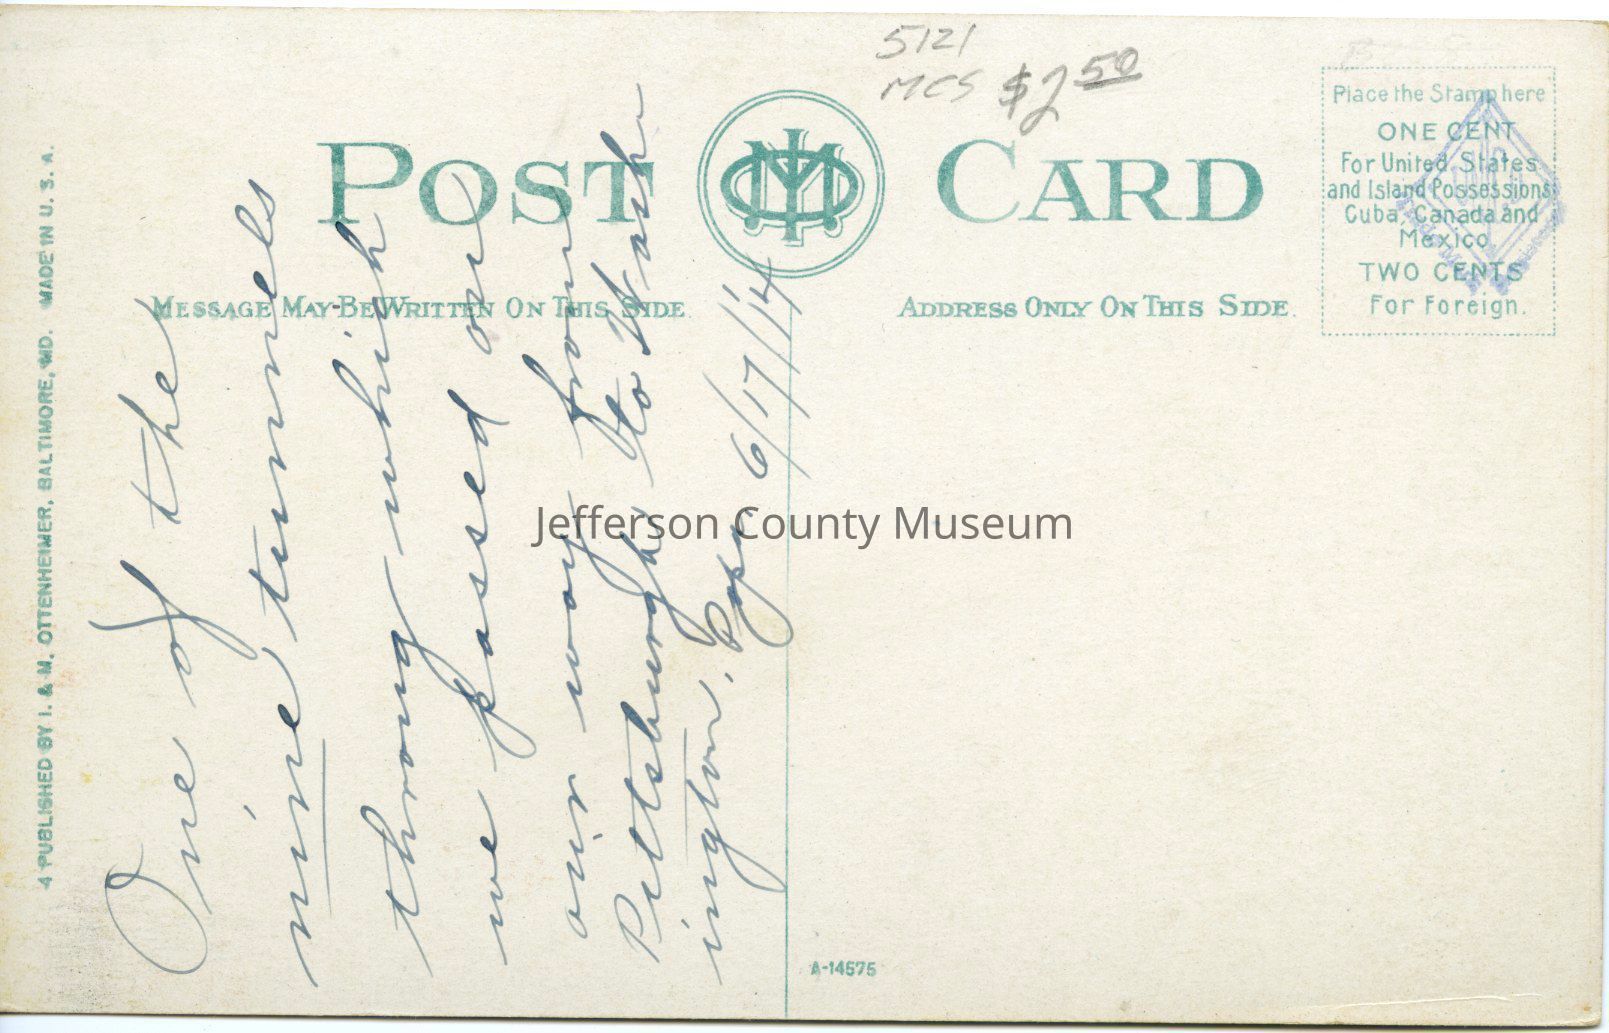 5121
MCS $2 50
POST CARD
MESSAGE MAY-BE WRITTEN ON THIS SIDE
ADDRESS ONLY ON THIS SIDE.
Place the Stamp here
ONE CENT
For United States
and Island Possessions
Cuba, Canada and
Mexico
TWO CENTS
For Foreign.
4 PUBLISHED BY I. & M. OTTENHEIMER, BALTIMORE, MD. MADE IN U. S. A.
One of the
nine tunnels
through which
we passed on
our way from
Pittsburgh, to Wash
ington, Papa. 6/17/14
Jefferson County Museum
A-14575